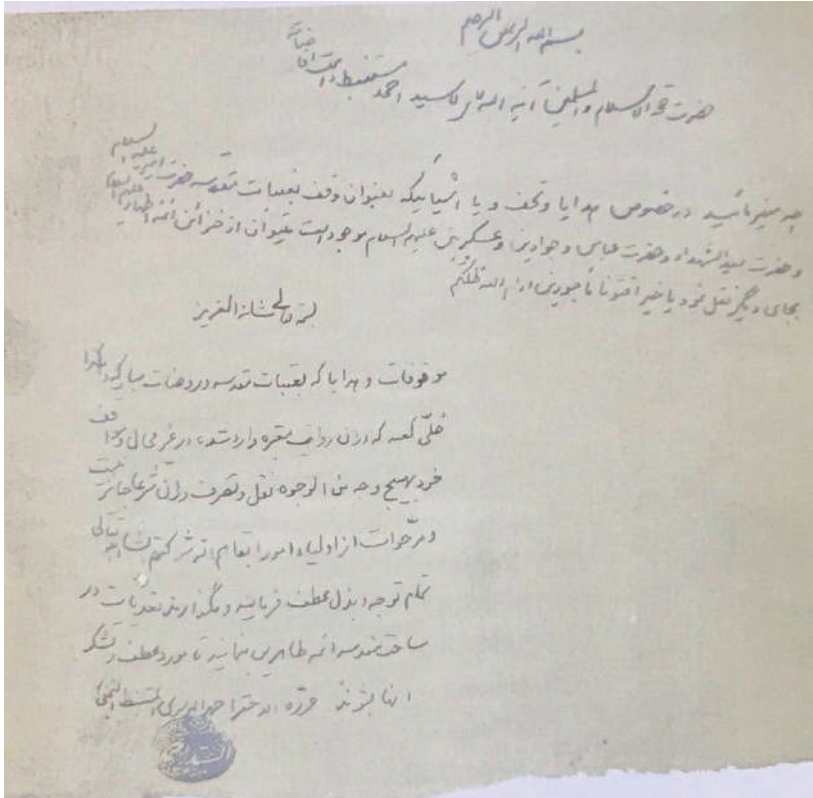 بسم الله الرحمن الرحیم
حضرت حجة الاسلام والمسلمین آیة الله آقای سید احمد مستنبط دامت افاضاته
چه میفرمائید در خصوص هدایا و تحف و یا اشیائیکه بعنوان وقف بعتبات مقدسه حضرت امیر علیه السلام
و حضرت سید الشهداء و حضرت عباس و جوادین و عسکریین علیهم السلام موجود است میتوان از خزائن ائمه اطهار علیهم السلام
بجای دیگر نقل نمود یا خیر افتونا ماجورین ادام الله ظلکم
بسمه تعالی شانه العزیز
موقوفات و هدایا که بعتبات مقدسه و روضات مبارکه و هکذا
حلّی کعبه که در آن روایت معتبره وارد شده در غیر محال وقف
خود بهیچ وجه من الوجوه نقل و تصرف در آن شرعا جائز نیست
و مرجوات از اولیاء امور انشاء الله تعالی
تمام توجه و بذل عطف فرمایند و نگذارند تعدیات در
ساحت مقدسه ائمه طاهرین بنمایند تا مورد عطف و تشکر
آنها بشوند حرّره الاحقر احمد الموسوی المستنبط